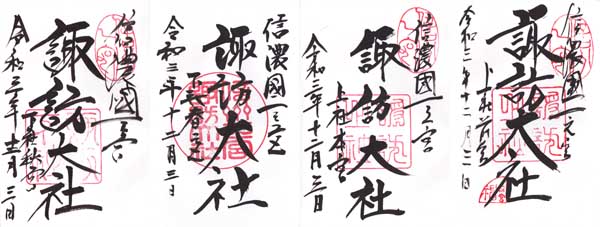 信濃國一之宮
諏訪大社
下社秋宮
令和三年十二月三日
信濃國一之宮
諏訪大社
下社春宮
令和三年十二月三日
信濃國一之宮
諏訪大社
上社本宮
令和三年十二月三日
信濃國一之宮
諏訪大社
上社前宮
令和三年十二月三日